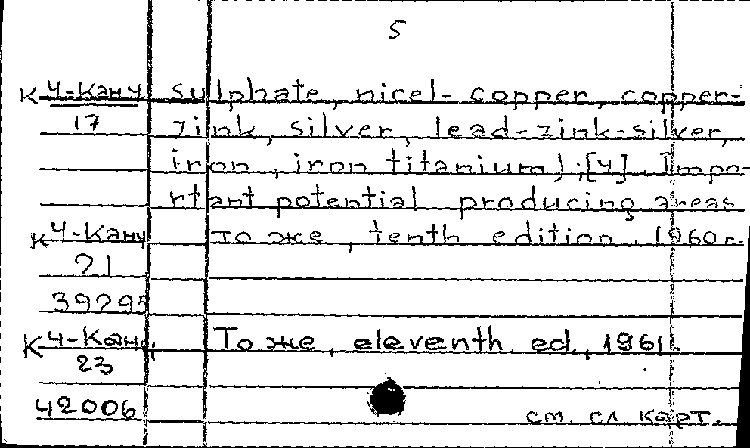 5
К Ч-Кану sulphate, nicel-copper, copper-
17 zink, silver, lead-zink-silver,
iron, iron titanium);[4]. Impo-
rtant potential producing areas
К Ч-Кану То же, tenth edition, 1960г.
21
39295
К Ч-Кану То же, eleventh ed., 1961г.
23
42006 см. сл. карт.